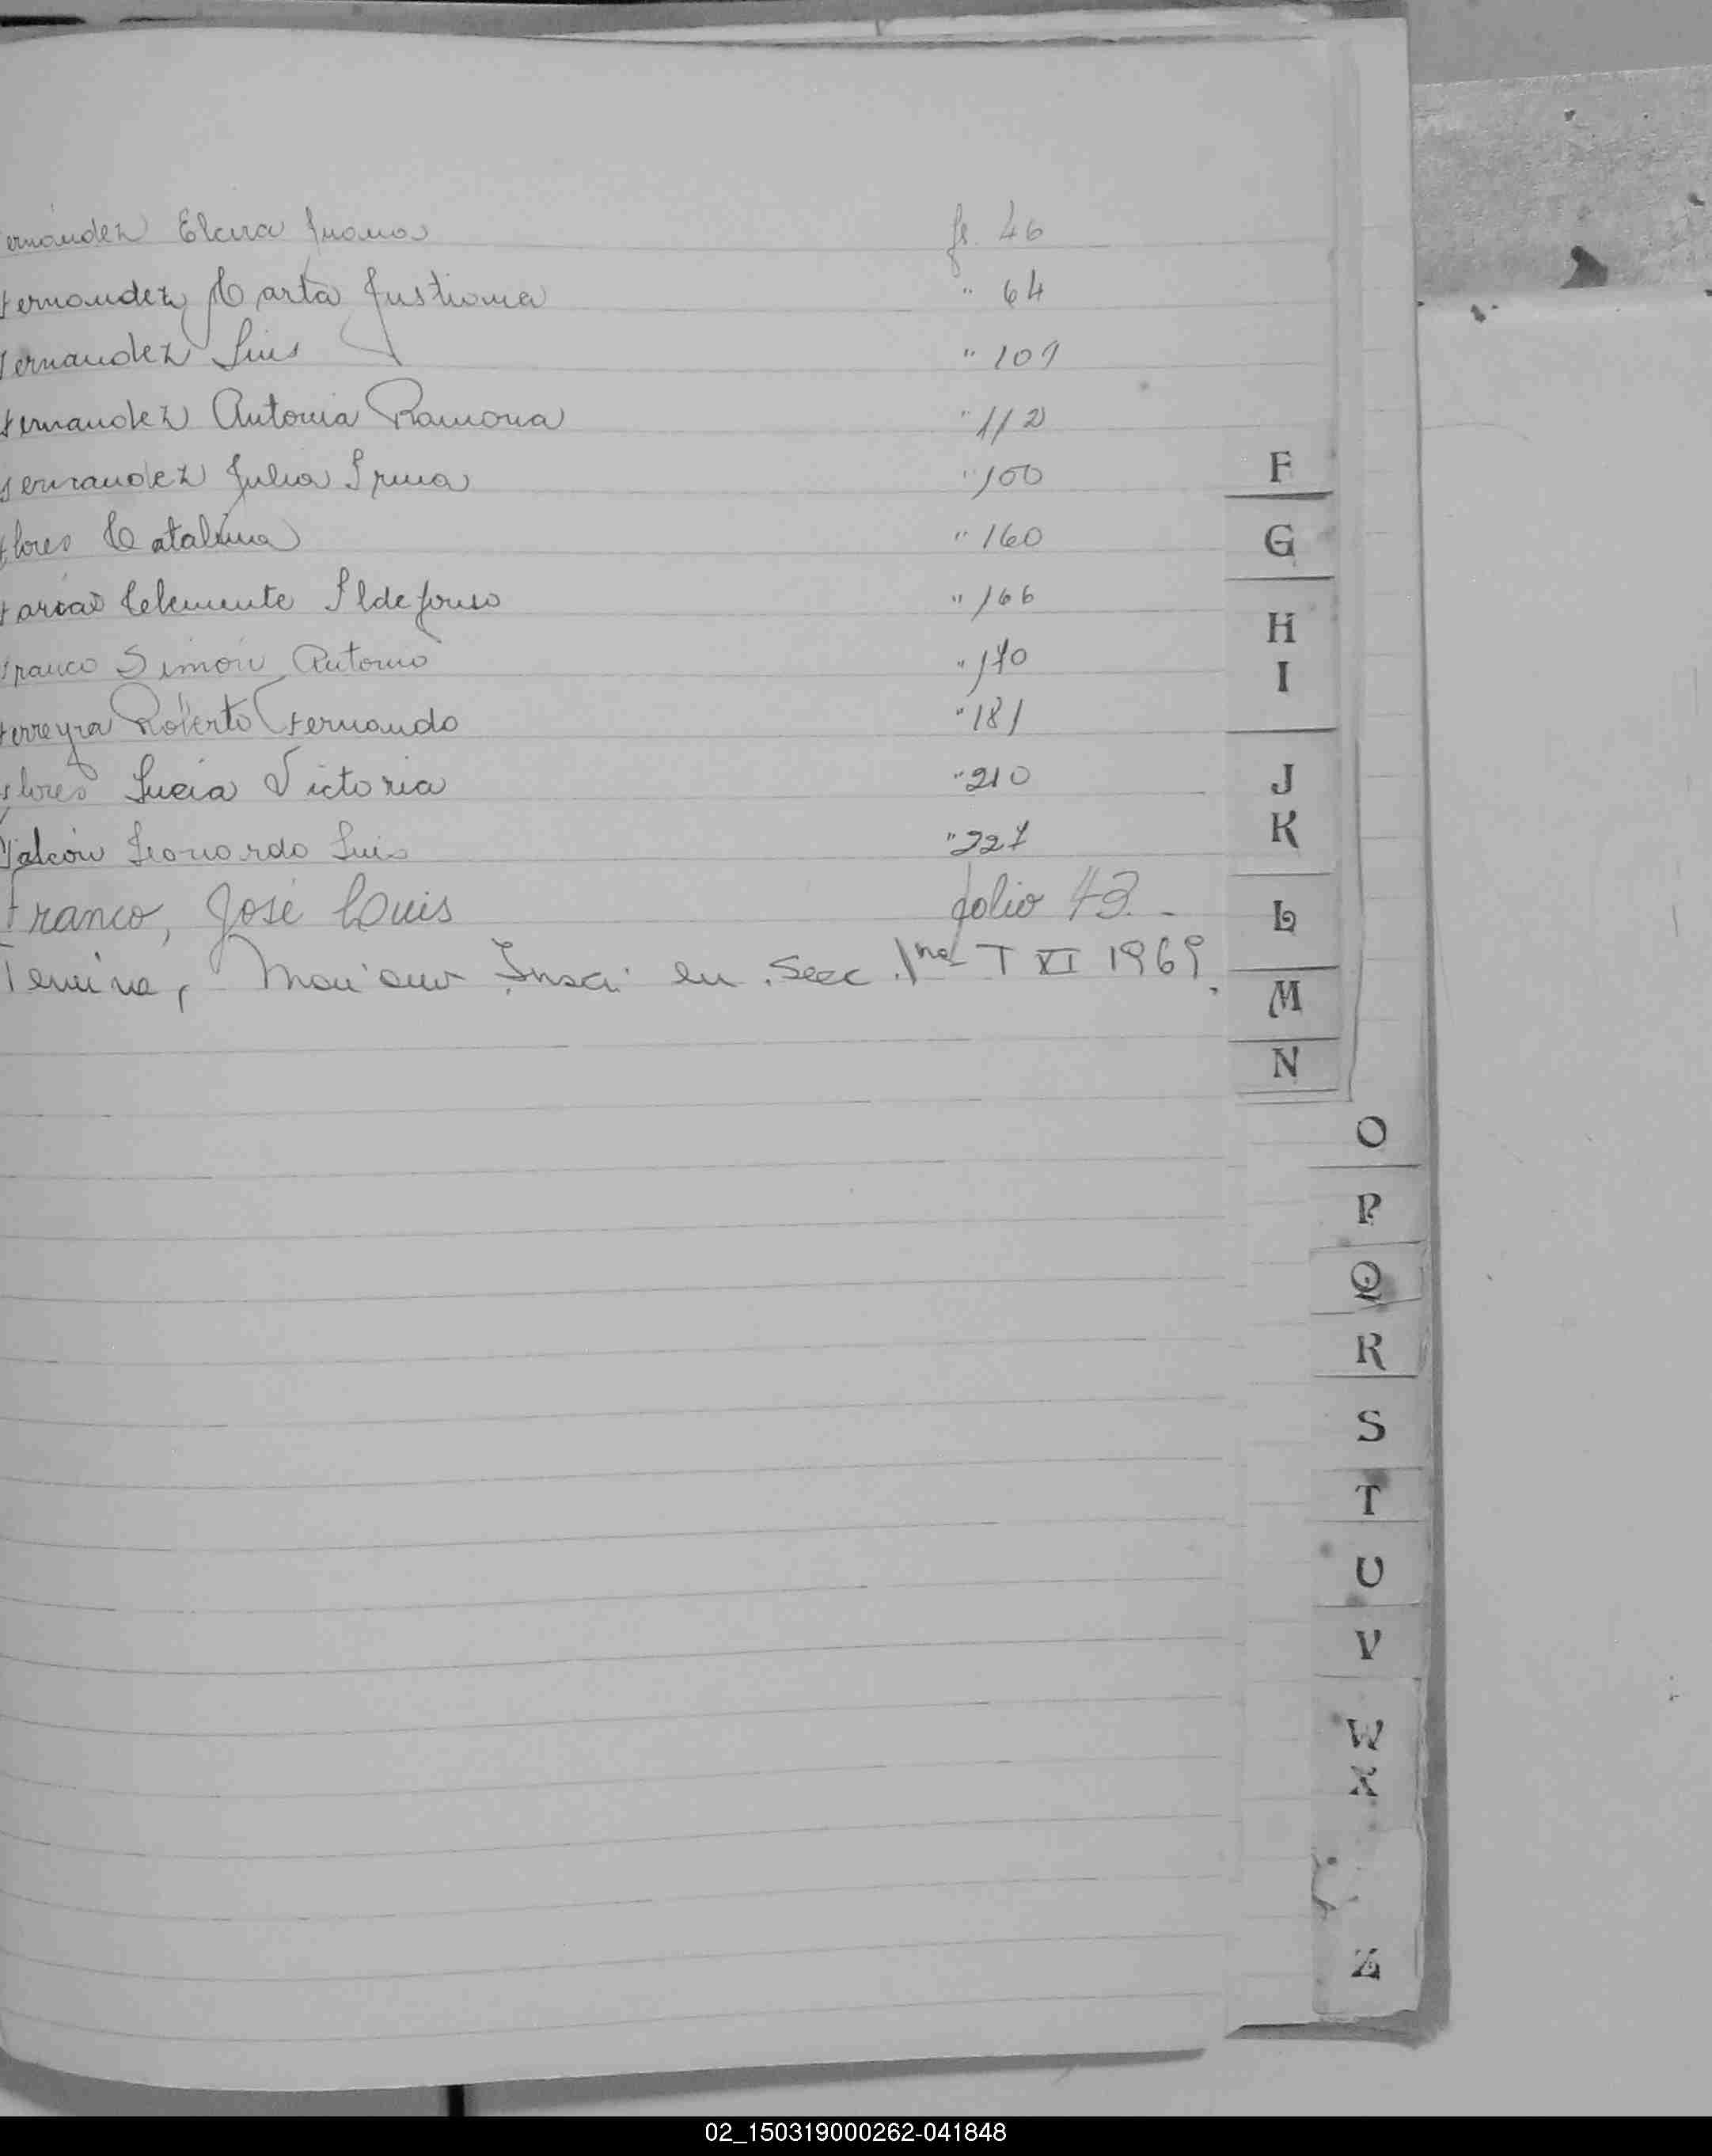 Fernández Elena Juana fs. 46
Fernandez Marta Justiona " 64
Fernandez Luis " 109
Fernandez Antonia Ramona " 112
Fernandez Julia Irma " 100
Flores Catalina " 160
Farias Clemente Ildefonso " 166
Franco Simón Antonio " 170
Ferreyra Roberto Fernando " 181
Flores Lucia Victoria " 210
Falcón Leonardo Luis " 227
Franco, José Luis folio 43.-
en Secc 1ra T VI 1969.
F
G
H
I
J
K
L
M
N
O
P
Q
R
S
T
U
V
W
X
Z
02_150319000262-041848